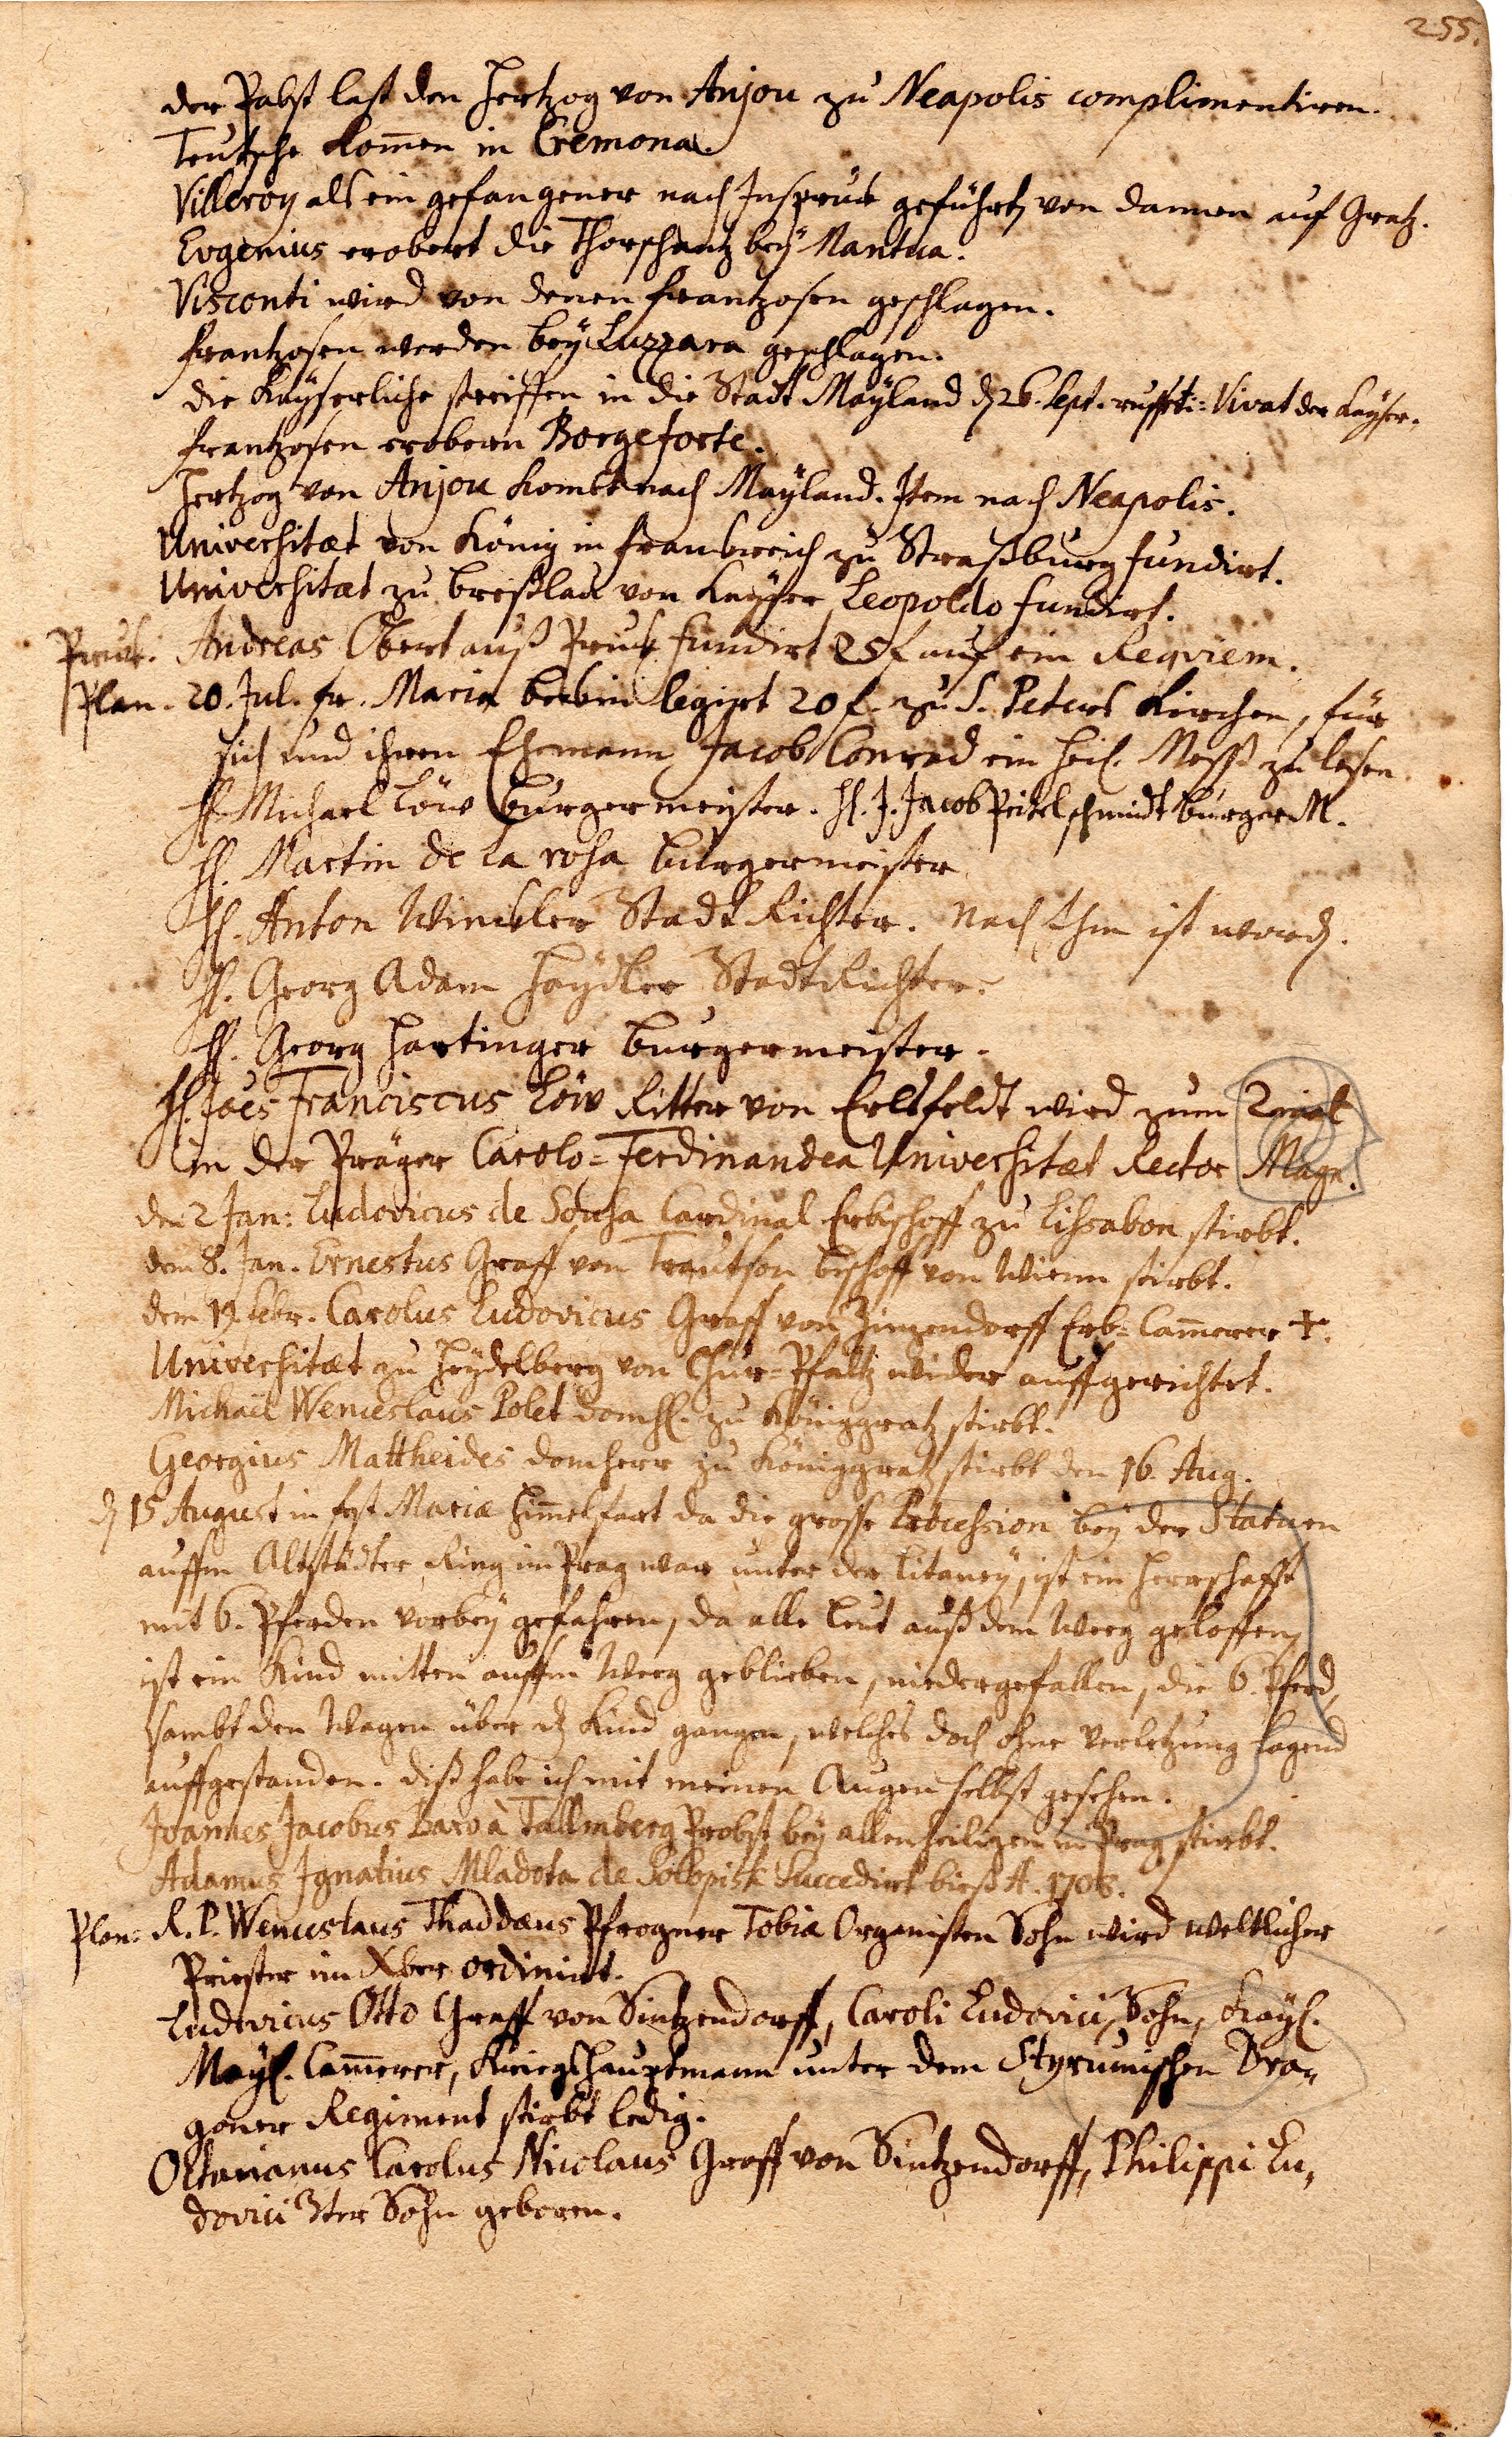 255.
der Pabst last den Hertzog von Anjou zu Neapolis complimentiren.
Teutsche kom̄en in Cremona.
Villeroy als ein gefangener nach Inspruk geführt, von dannen auf Gratz.
Eugenius erobert die Thorschantz bey Mantua.
Visconti wird von denen frantzosen geschlagen.
frantzosen werden bey Luzzara geschlagen.
die Kayserliche streiffen in die Stadt Mayland d. 26. Sept. rufft: Vivat der Kayser.
frantzosen erobern Borgeforte.
Hertzog von Anjou kombt nach Mayland. Item nach Neapolis.
Universitæt von König in frankreich zu Straßburg fundirt.
Universitæt zu breßlau von Kayser Leopoldo fundirt.
Pruk: Andreas Obert auß Pruk fundirt 25 f. auf ein Reqviem.
Plan. 20. Jul. fr. Maria legirt 20 f. zu S. Peters Kirchen, für
sich und ihren Ehemann Jacob Conrad ein heil. Meß zu lesen.
H. Michael Löw burgermeister. H. J. Jacob Peitelschmidt burger M.
H. Martin de la rosa burgermeister
H. Anton Winckler Stadt Richter. Nach Ihm ist word.
H. Georg Adam Haydler Stadt Richter.
H. Georg Hartinger burgermeister.
H. Joēs Franciscus Löw Ritter von Erlsfeldt wird zum 2 mal
in der Prager Carolo=Ferdinandea Universitæt Rector Magn.
den 2 Jan: Ludovicus de Sousa Cardinal Erbischoff zu Lissabon stirbt.
dem 8. Jan. Ernestus Graff von Trautson bischoff von Wienn stirbt.
dem 19. febr. Carolus Ludovicus Graff von Zinzendorff Erb=Cam̄erer †.
Universitæt zu Heydelberg von Chur=Pfaltz wider auffgerichtet.
Michaël Wenceslaus Polet domH. zu Königgratz stirbt.
Georgius Mattheides domherr zu Königgratz stirbt den 16. Aug.
d. 15 August in fest Mariæ him̄elfart da die grosse Procession bey der Statuen
auffm Altstädter Ring im Prag war unter der Litaney, ist ein Herrschafft
mit 6. Pferden vorbey gefahren, da alle Leut auß dem Weeg geloffen,
ist ein Kind mitten auffm Weeg geblieben, niedergefallen, die 6. Pferd,
sambt den Wagen über dz Kind gangen, welches doch ohne Verletzung
auffgestanden. diß habe ich mit meinen Augen selbst gesehen.
Joannes Jacobus Baro à Tallmberg Probst bey allenheiligen in Prag stirbt.
Adamus Ignatius Mladota de Solopisk Succedirt bieß A. 1706.
Plan: R. P. Wenceslaus Thaddæus Pfrogner Tobiæ Organisten Sohn wird weltlicher
Priester im Xber ordinirt.
Ludovicus Otto Graff von Sintzendorff, Caroli Ludovici Sohn, Kayl.
Mayl. Cam̄erer, Kriegshauptmann unter dem Styrumischen Dra=
goner Regiment stirbt ledig.
Octavianus Carolus Nicolaus Graff von Sintzendorff, Philippi Lu=
dovici 3ter Sohn geboren.